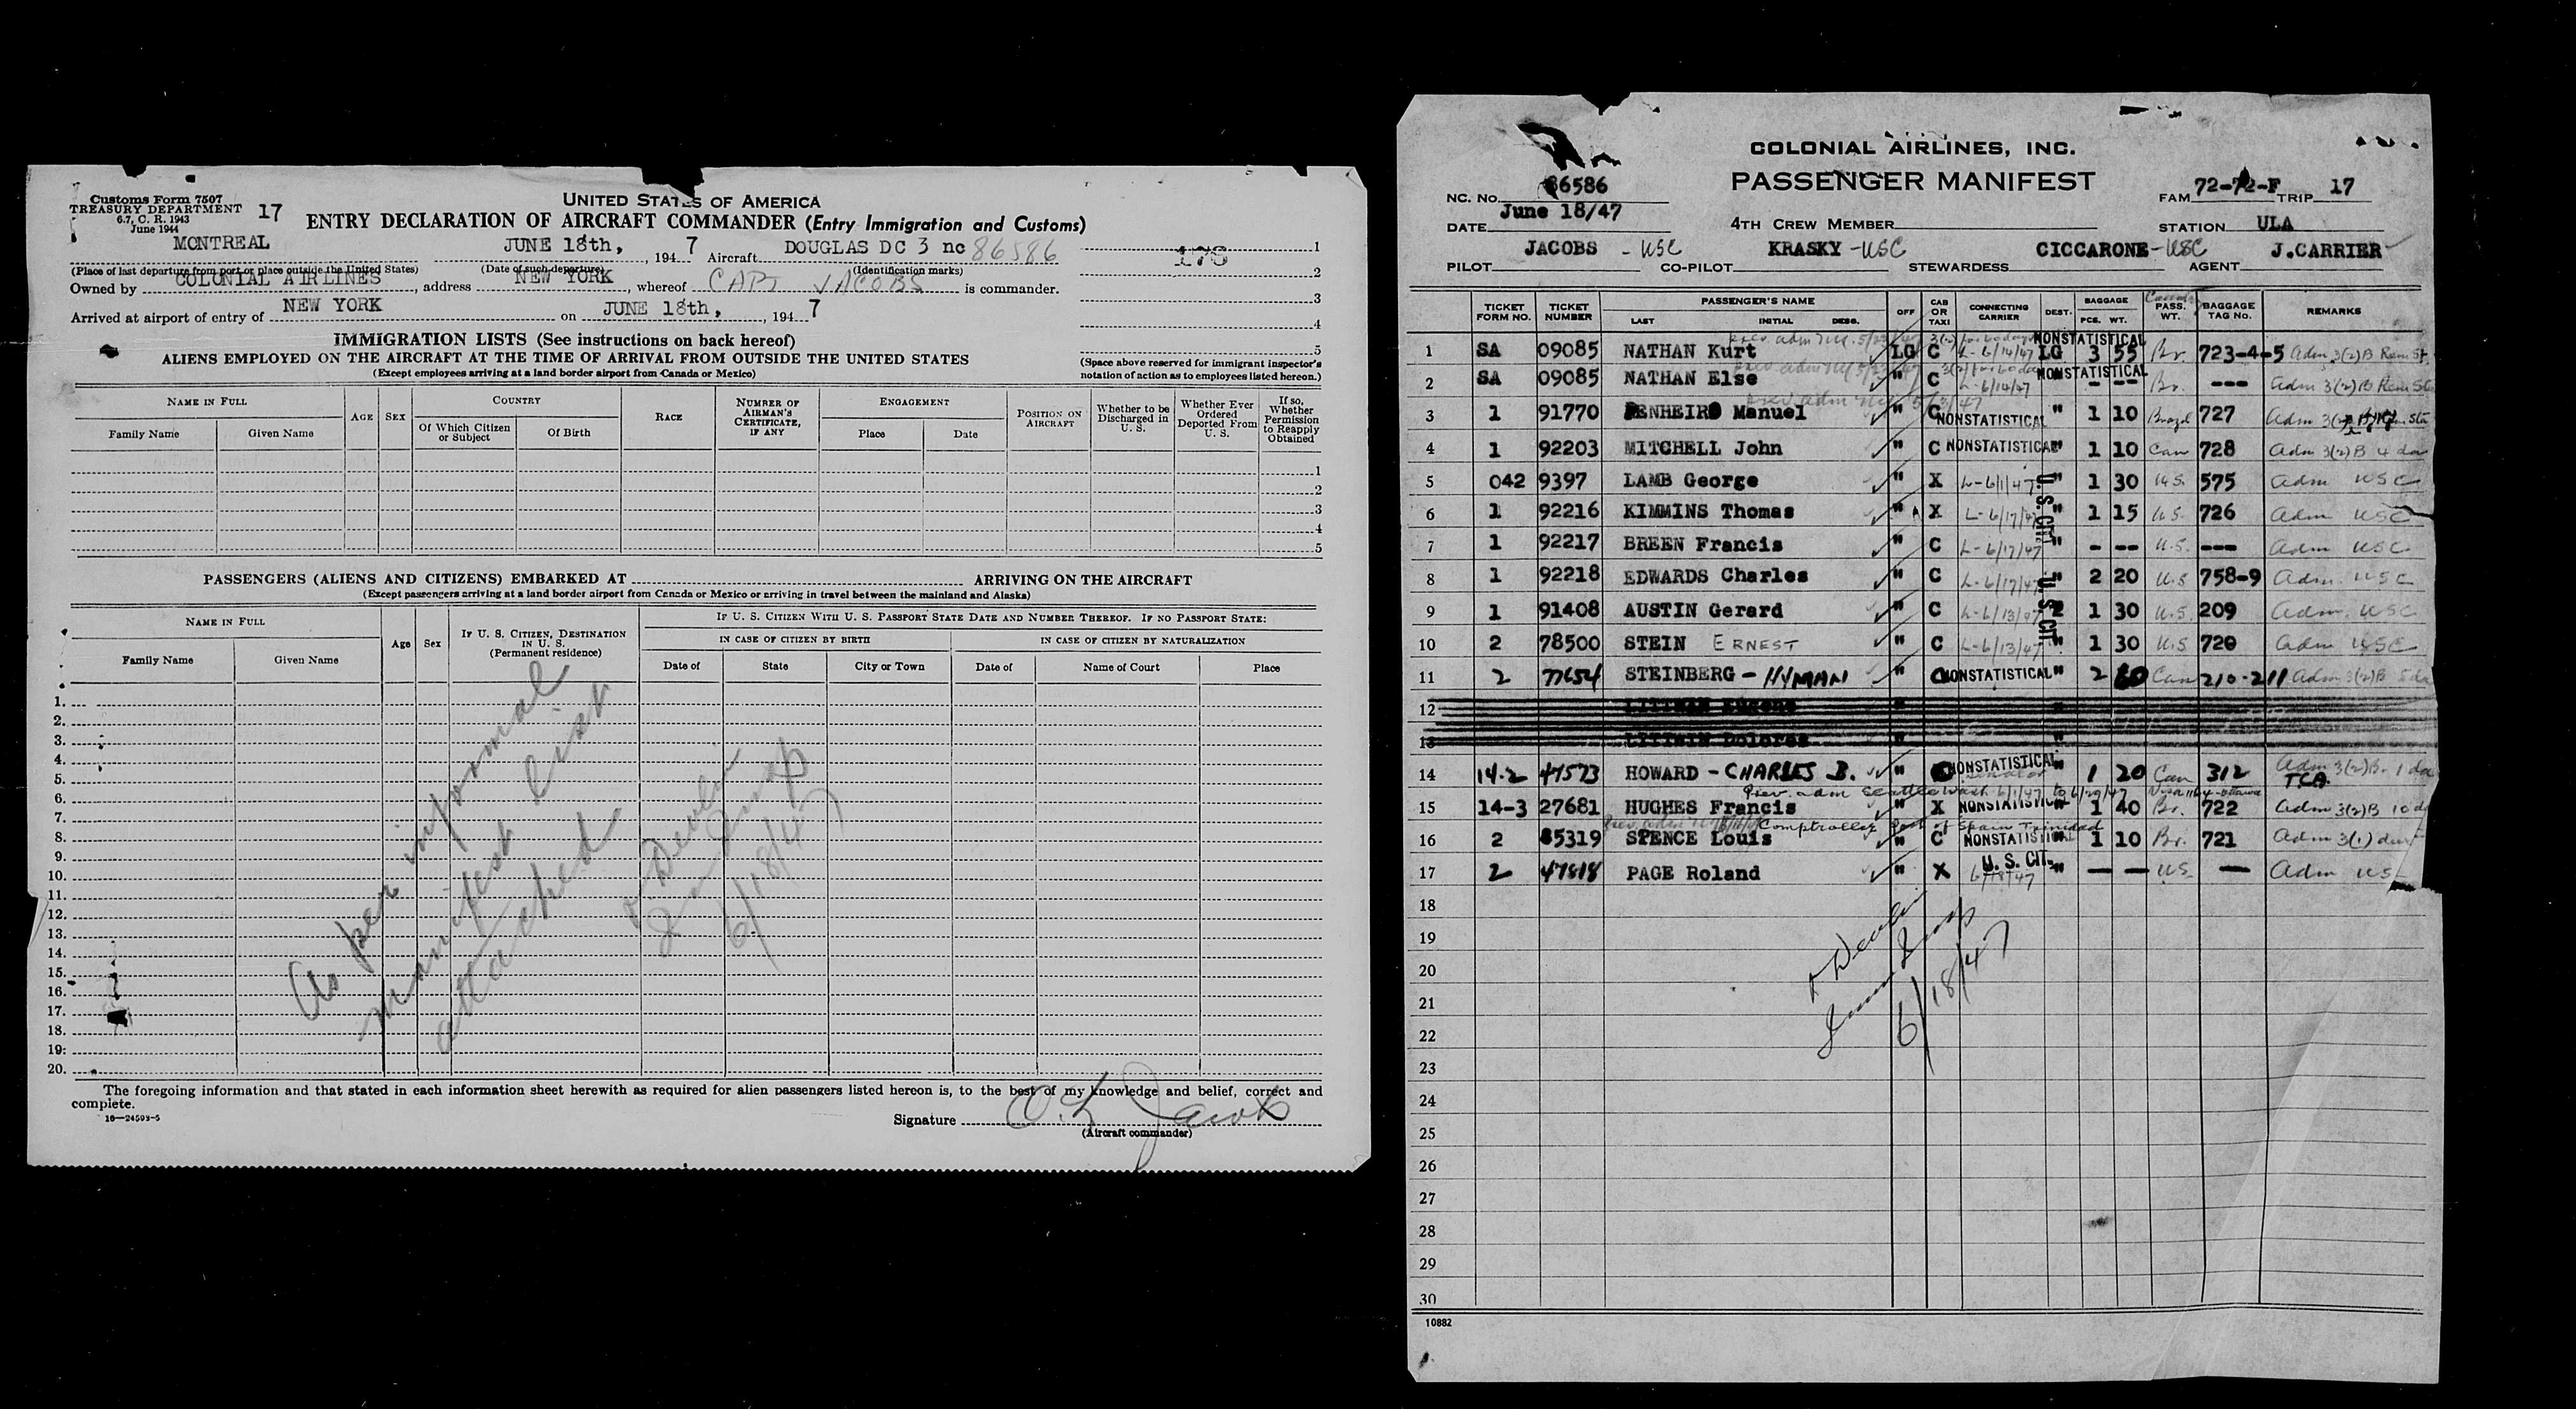 Customs Form 7507
TREASURY DEPARTMENT
6.7, C. R. 1943
June 1944
17
UNITED STATES OF AMERICA
ENTRY DECLARATION OF AIRCRAFT COMMANDER (Entry Immigration and Customs)
MONTREAL JUNE 18th, 194 7 Aircraft DOUGLAS DC 3 nc 86586
(Place of last departure from port or place outside the United States) (Date of such departure) (Identification marks)
Owned by COLONIAL AIRLINES, address NEW YORK, whereof CAPT JACOBS is commander.
Arrived at airport of entry of NEW YORK on JUNE 18th, 194 7
1
2
3
4
5
(Space above reserved for immigrant inspector's
notation of action as to employees listed hereon.)
IMMIGRATION LISTS (See instructions on back hereof)
ALIENS EMPLOYED ON THE AIRCRAFT AT THE TIME OF ARRIVAL FROM OUTSIDE THE UNITED STATES
(Except employees arriving at a land border airport from Canada or Mexico)
NAME IN FULL
Family Name Given Name
AGE SEX
COUNTRY
Of Which Citizen or Subject Of Birth
RACE
NUMBER OF AIRMAN'S CERTIFICATE, IF ANY
ENGAGEMENT
Place Date
POSITION ON AIRCRAFT
Whether to be Discharged in U. S.
Whether Ever Ordered Deported From U. S.
If so, Whether Permission to Reapply Obtained
1
2
3
4
5
PASSENGERS (ALIENS AND CITIZENS) EMBARKED AT ARRIVING ON THE AIRCRAFT
(Except passengers arriving at a land border airport from Canada or Mexico or arriving in travel between the mainland and Alaska)
NAME IN FULL
Family Name Given Name
Age Sex
IF U. S. CITIZEN, DESTINATION IN U. S.
(Permanent residence)
IF U. S. CITIZEN WITH U. S. PASSPORT STATE DATE AND NUMBER THEREOF. IF NO PASSPORT STATE:
IN CASE OF CITIZEN BY BIRTH IN CASE OF CITIZEN BY NATURALIZATION
Date of State City or Town Date of Name of Court Place
1.
2.
3.
4.
5.
6.
7.
8.
9.
10.
11.
12.
13.
14.
15.
16.
17.
18.
19.
20.
As per informal
manifest list
attached
6/18/47
The foregoing information and that stated in each information sheet herewith as required for alien passengers listed hereon is, to the best of my knowledge and belief, correct and
complete.
16—24593-5
Signature Jacobs
(Aircraft commander)
COLONIAL AIRLINES, INC.
PASSENGER MANIFEST
NC. NO. 86586
FAM 72-72-F TRIP 17
DATE June 18/47 4TH CREW MEMBER STATION ULA
PILOT JACOBS - USC CO-PILOT KRASKY - USC STEWARDESS CICCARONE - USC AGENT J.CARRIER
TICKET FORM NO. TICKET NUMBER PASSENGER'S NAME LAST INITIAL DESG. OFF CAB OR TAXI CONNECTING CARRIER DEST. BAGGAGE PCS. WT. PASS. WT. BAGGAGE TAG No. REMARKS
1 SA 09085 NATHAN Kurt LG C L-6/14/47 NONSTATISTICAL LG 3 55 Br. 723-4-5 Adm 3(2)B
2 SA 09085 NATHAN Else " C L-6/14/47 NONSTATISTICAL - -- Br. --- Adm 3(2)B
3 1 91770 Manuel " C NONSTATISTICAL " 1 10 727 Adm
4 1 92203 MITCHELL John " C NONSTATISTICAL " 1 10 Can 728 Adm 3(2)B 4 da
5 042 9397 LAMB George " X " 1 30 U.S. 575 Adm USC
6 1 92216 KIMMINS Thomas " X L-6/17/47 " 1 15 U.S. 726 Adm USC
U. S. CIT.
7 1 92217 BREEN Francis " C L-6/17/47 " - -- U.S. --- Adm USC
8 1 92218 EDWARDS Charles " C L-6/17/47 " 2 20 U.S 758-9 Adm. USC
9 1 91408 AUSTIN Gerard " C L-6/13/47 1 30 U.S. 209 Adm. USC
U. S. CIT.
10 2 78500 STEIN ERNEST " C L-6/13/47 " 1 30 U.S 720 Adm USC
11 2 77654 STEINBERG - HYMAN " C NONSTATISTICAL " 2 60 Can 210-211 Adm 3(2)B 5 da
12
13
14 14-2 47573 HOWARD - CHARLES B. " NONSTATISTICAL " 1 20 Can 312 Adm 3(2)B. 1 da
TCA.
15 14-3 27681 HUGHES Francis " X NONSTATISTICAL " 1 40 Br. 722 Adm 3(2)B 10 d
Comptroller Port of Spain Trinidad
16 2 85319 SPENCE Louis " C NONSTATISTICAL " 1 10 Br. 721 Adm 3(1)
17 2 47818 PAGE Roland " X U. S. CIT. 6/18/47 " — — U.S. — Adm US
18
19
20
21
22
23
24
25
26
27
28
29
30
6/18/47
10882